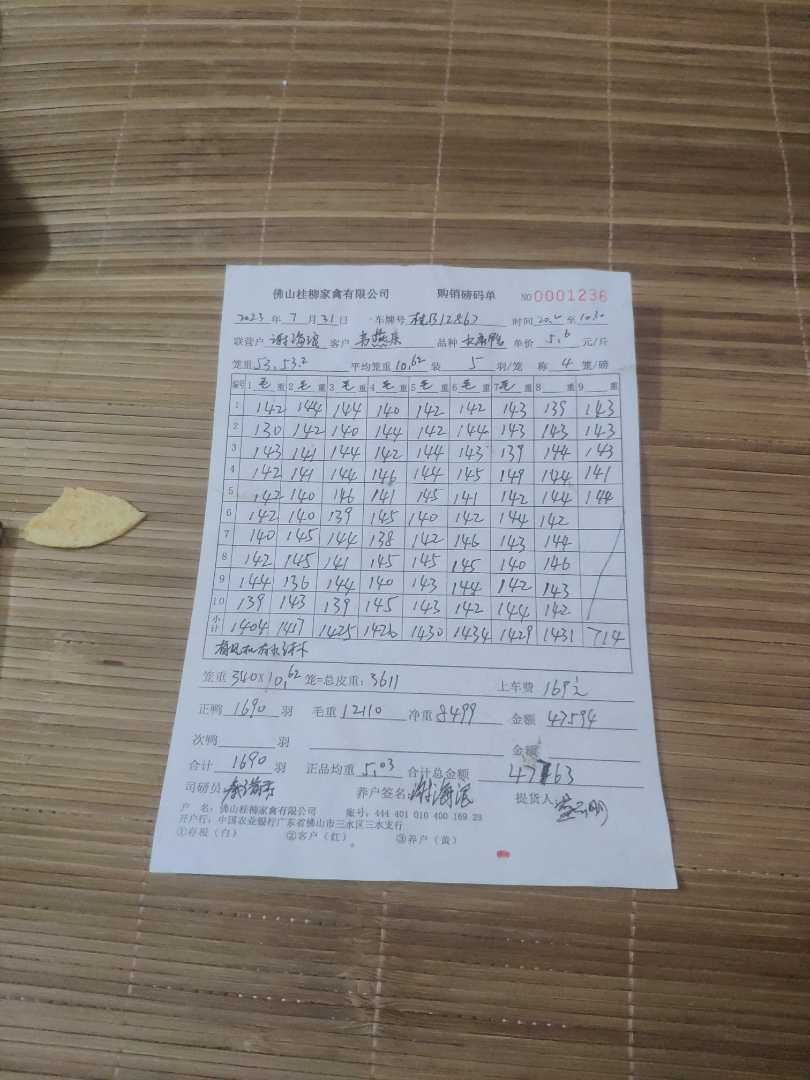 佛山桂柳家禽有限公司 购销磅码单 NO0001236
2023年7月31日 车牌号桂B12867 时间 至1030
联营户 谢海滨 客户 品种 单价5.6元/斤
笼重53.53.2 平均笼重10.62 装5羽/笼 称4笼/磅
编号 1毛重 2毛重 3毛重 4毛重 5毛重 6毛重 7毛重 8 重 9 重
1 142 144 144 140 142 142 143 139 143
2 130 142 140 144 142 144 143 143 143
3 143 141 144 142 144 143 139 144 143
4 142 141 144 146 144 145 149 144 141
5 142 140 146 141 145 141 142 144 144
6 142 140 139 145 140 142 144 142
7 140 145 144 138 142 146 143 144
8 142 145 141 145 145 145 140 146
9 144 136 144 140 143 144 142 143
10 139 143 139 145 143 142 144 142
小计 1404 1417 1425 1426 1430 1434 1429 1431 714
笼重340×10.62笼=总皮重:3611 上车费169元
正鸭1690羽 毛重12110 净重8499 金额47594
次鸭 羽 金额
合计1690羽 正品均重5.03 合计总金额 47763
司研员 养户签名 谢海滨 提货人
户 名:佛山桂柳家禽有限公司 账号:444 401 010 400 169 28
开户行:中国农业银行广东省佛山市三水区三水支行
①存根(白) ②客户(红) ③养户(黄)